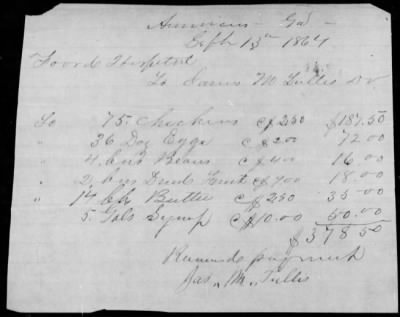 Americus - Ga -
Sept 13th 1864
Foord Hospital
To James M Tullis Dr
To 75 Chickens @ 2.50 $187.50
" 36 Doz Eggs @ 2.00 72.00
" 4 bus Beans @ 4.00 16.00
" 2 bus Dried Fruit @ 9.00 18.00
" 14 lbs Butter @ 2.50 35.00
5 Gals Syrup @ 10.00 50.00
$378.50
Received payment
Jas. M. Tullis